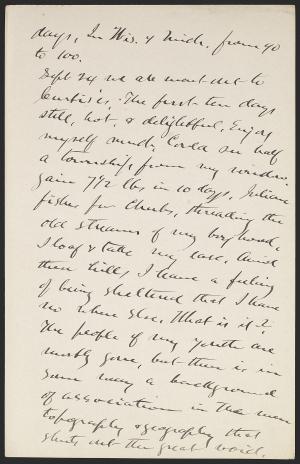 days, In Wis. & Mich. from 90
to 100.
Sept 24 we are most out to
Curtis's. The first ten days
still, hot, & delightful, Enjoy
myself much, Could see half
a township from my window.
gain 7 1/2 lbs in 10 days. Julian
fishes for Chubs, threading the
old streams of my boyhood,
I loaf & take my ease. Amid
these hills, I have a feeling
of being sheltered that I have
no where else. What is it?
The people of my youth are
mostly gone, but there is in
some way a background
of association in the mere
topography & geography that
shuts out the great void.